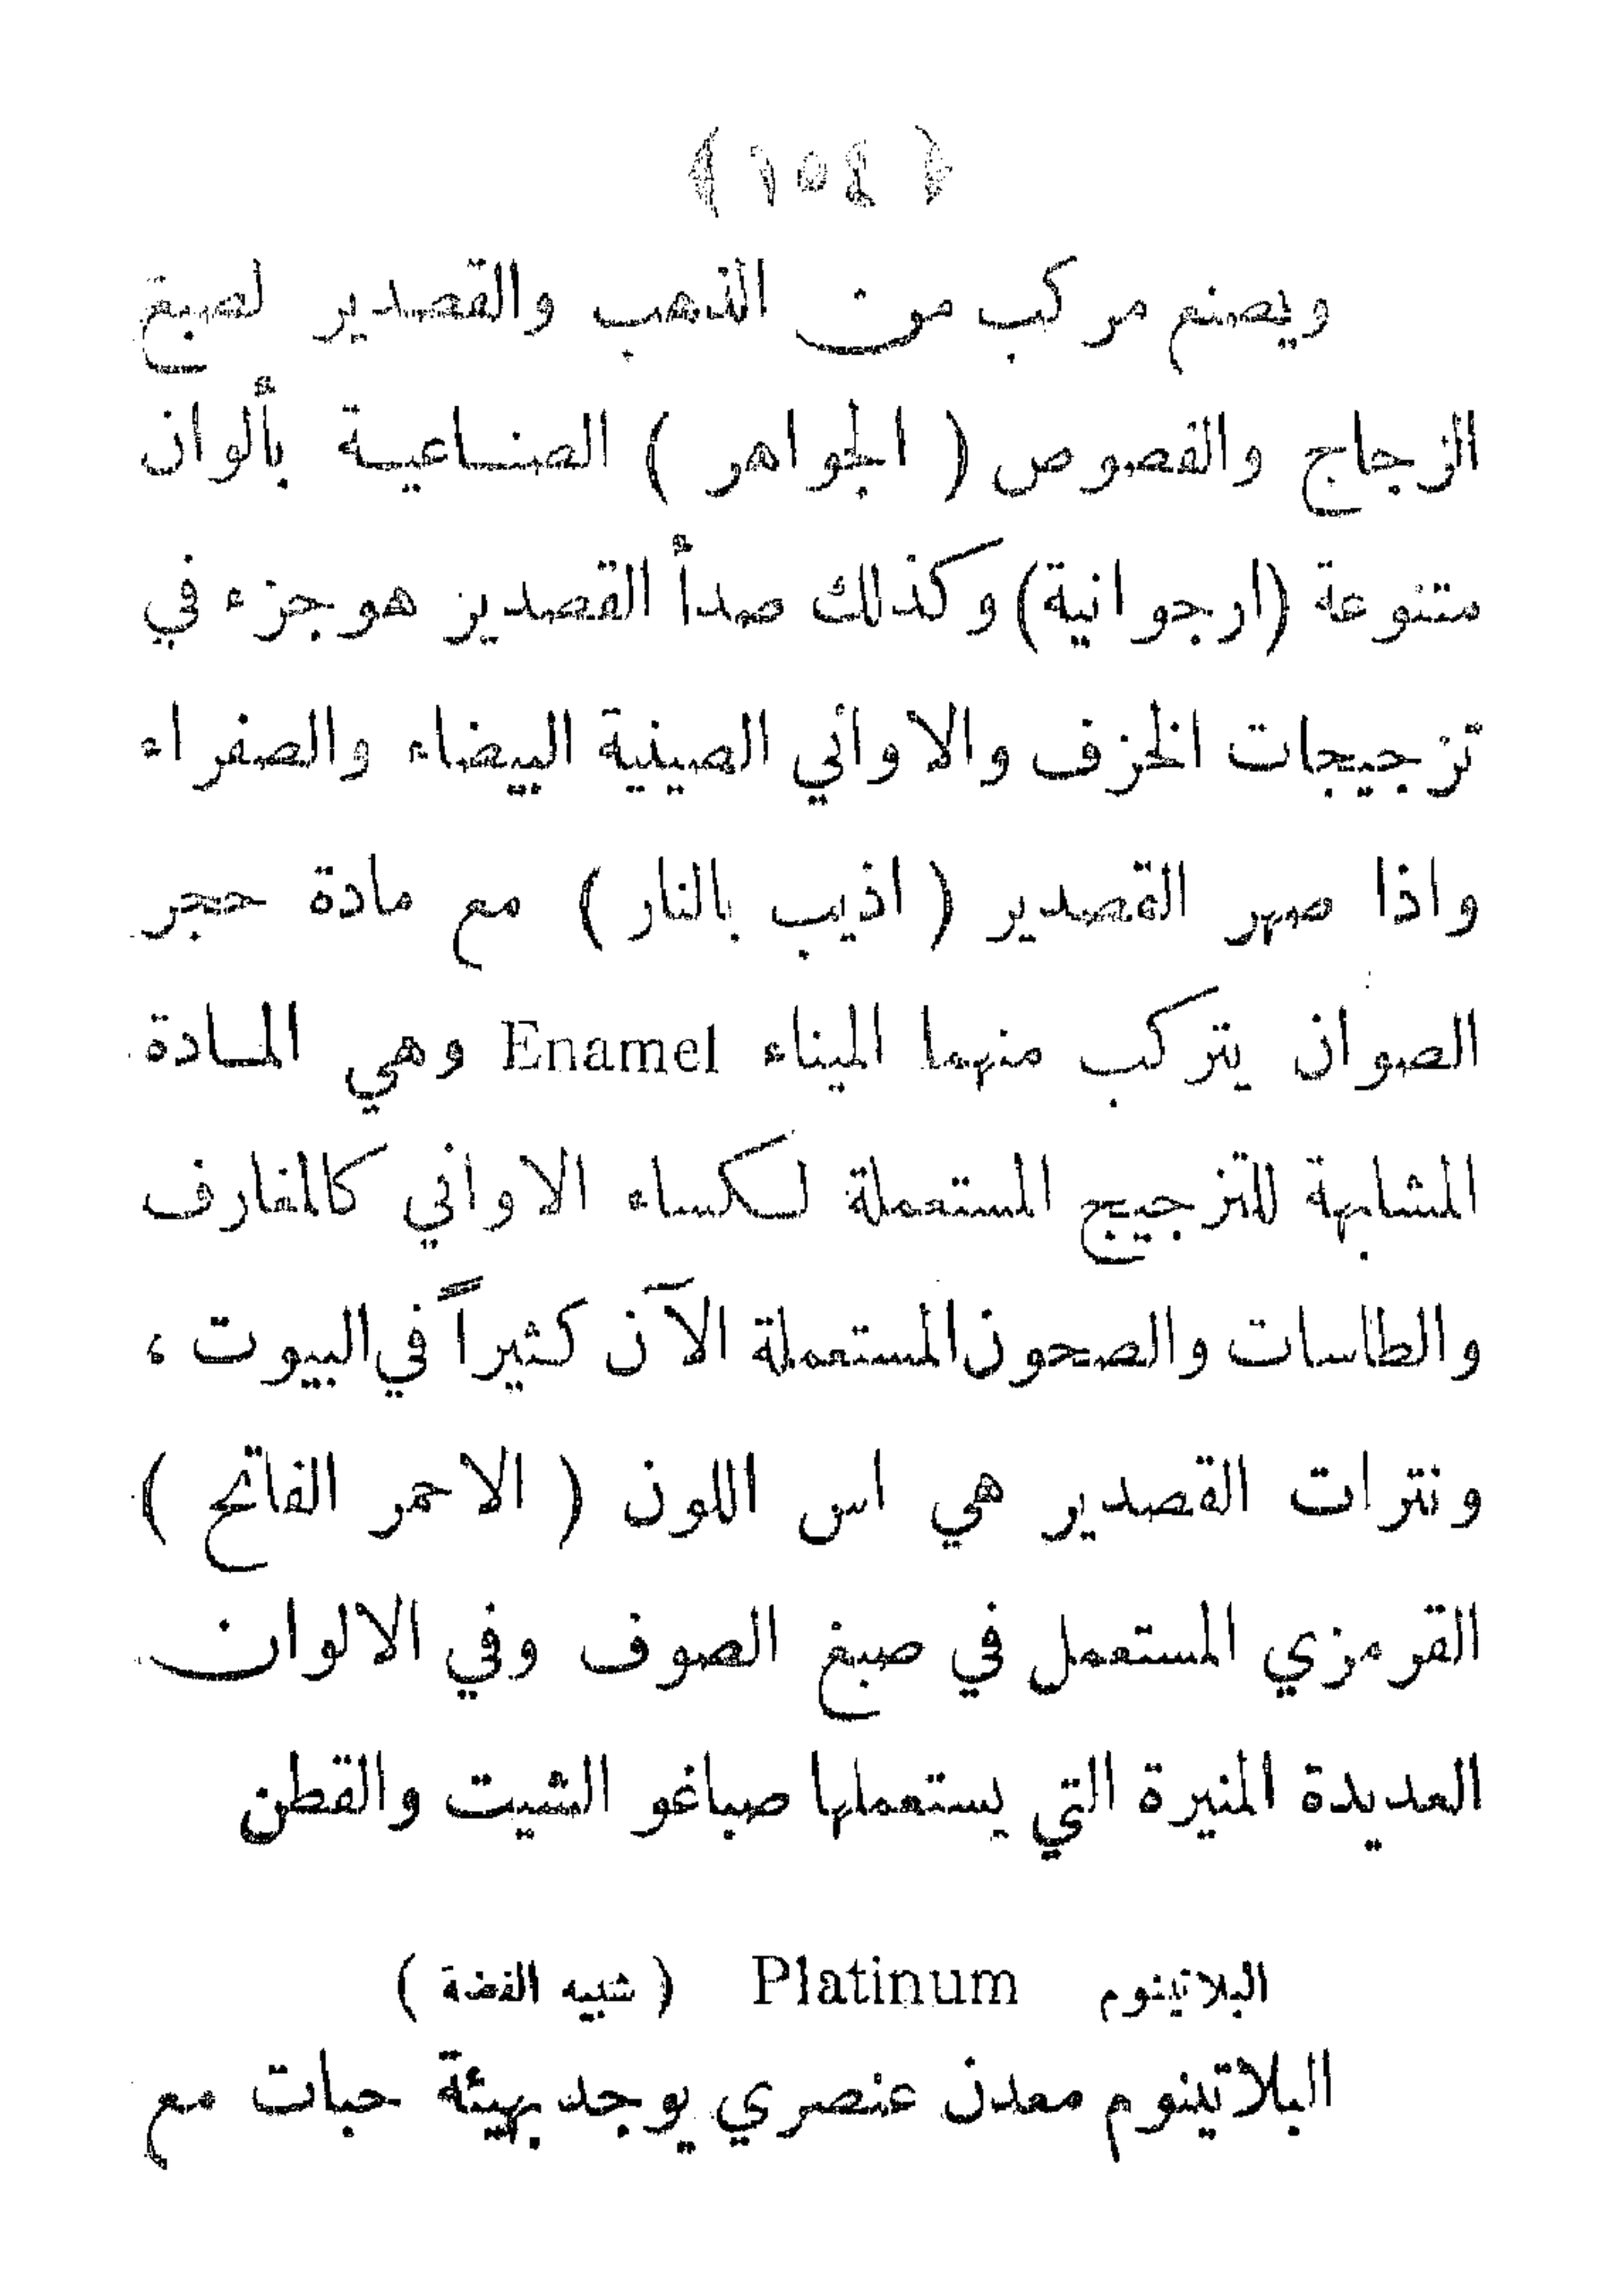 ﴿ ١٥٤ ﴾
ويصنع مركب من الذهب والقصدير لصبغ
الزجاج والفصوص ( الجواهر ) الصناعية بألوان
متنوعة (ارجوانية) وكذلك صدأ القصدير هو جزء في
تزجيجات الخزف والاواني الصينية البيضاء والصفراء
واذا صهر القصدير ( اذيب بالنار ) مع مادة حجر
الصوان يتركب منهما الميناء Enamel وهي المادة
المشابهة للتزجيج المستعملة لكساء الاواني كالمغارف
والطاسات والصحون المستعملة الآن كثيراً في البيوت ،
ونترات القصدير هي اس اللون ( الاحمر الفاتح )
القرمزي المستعمل في صبغ الصوف وفي الالوان
العديدة المنيرة التي يستعملها صباغو الشيت والقطن
البلاتينوم Platinum ( شبيه الفضة )
البلاتينوم معدن عنصري يوجد بهيئة حبات مع